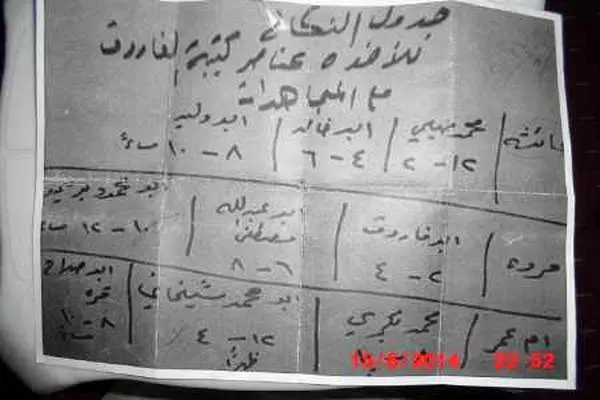 جدول النكاح
للأخوة عناصر كتيبة الفاروق
مع المجاهدات
عائشة محمد ابو خالد ابو وليد
١٢ – ٢ ٤ – ٦ ٨ – ١٠ مساءً
مروه ابو فاروق ابو عبدالله ابو محمود
مصطفى
٢ – ٤ ٦ – ٨ ١٠ – ١٢ مساءً
ام عمر محمد بكري ابو محمد شيخاني ابو صلاح
١٢ – ٤ ٨ – ١٠ مساءً
ظهراً
22:52